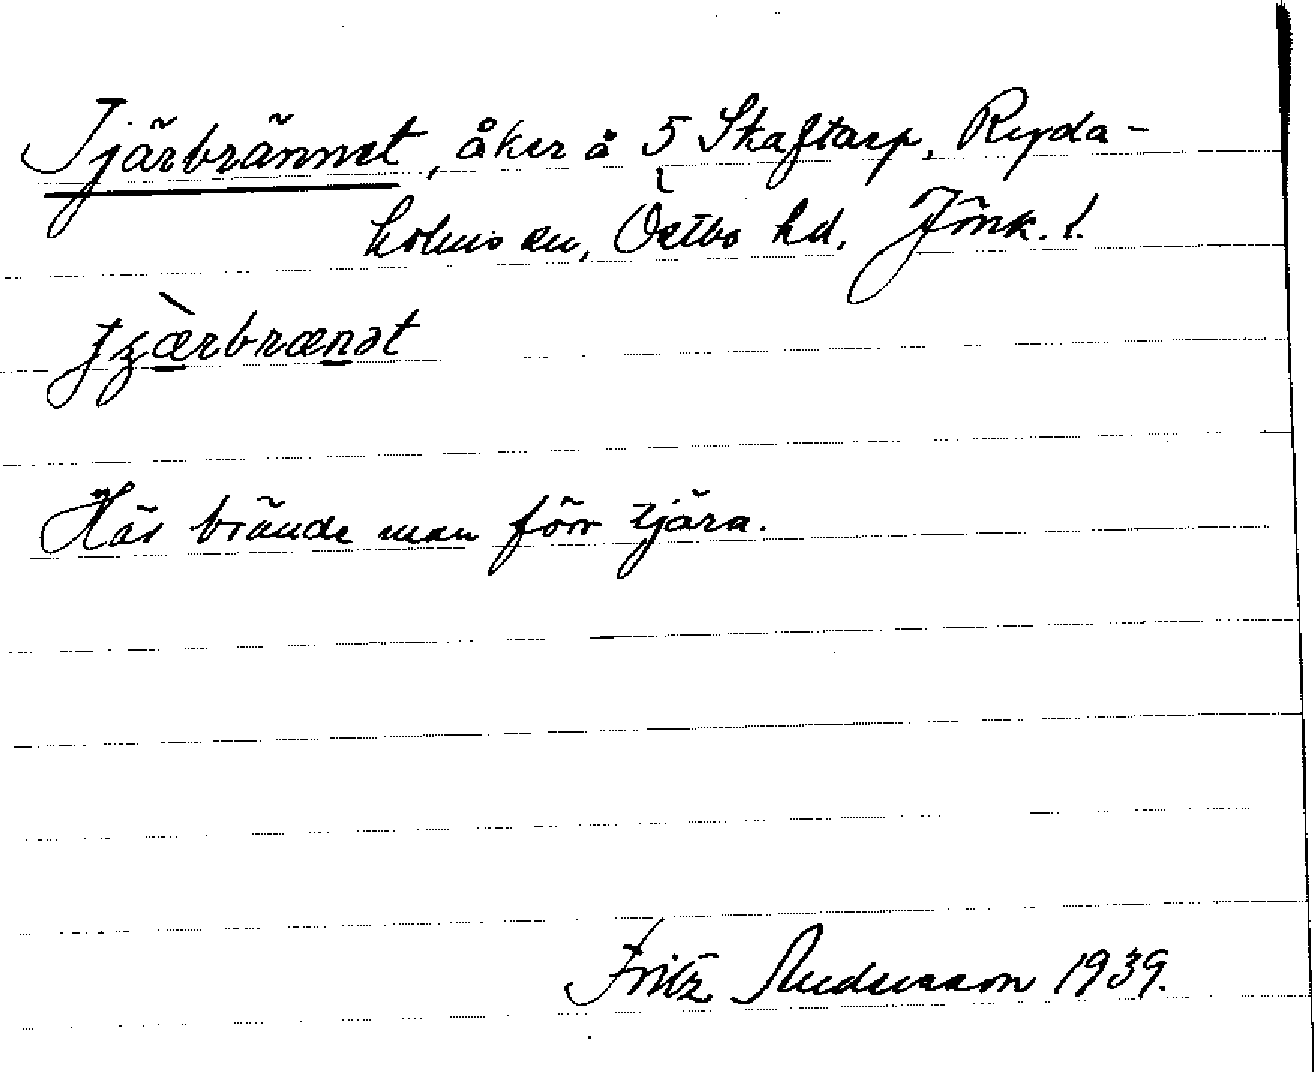 Tjärbrännet, åker å 5 Skaftarp, Ryda-
holms sn, Östbo hd. Jönk. l.
Här brände man förr tjära.
Fritz Andersson 1939.